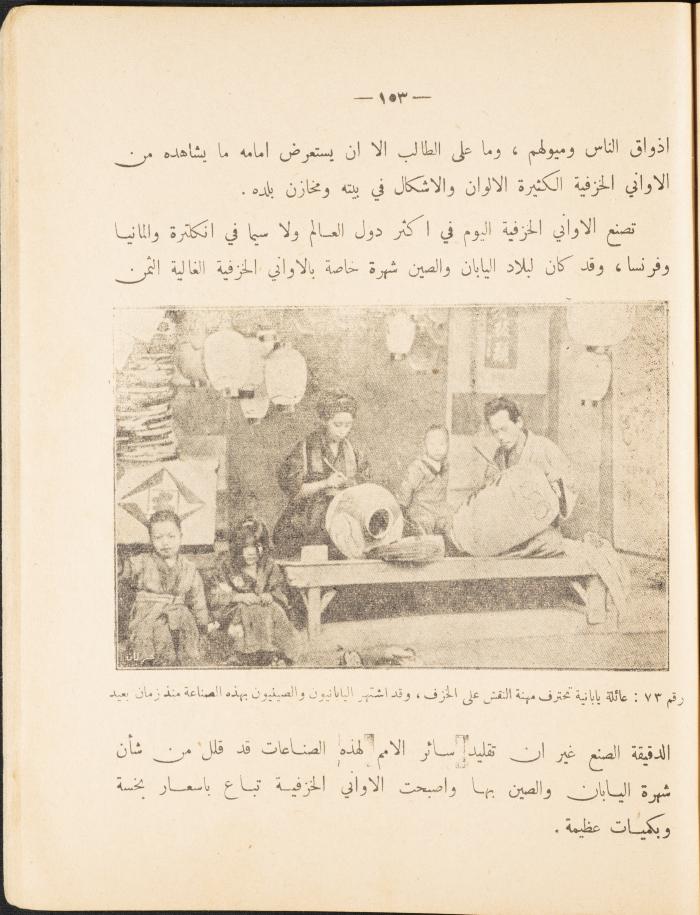 — ١٥٣ —
اذواق الناس وميولهم ، وما على الطالب الا ان يستعرض امامه ما يشاهده من
الاواني الخزفية الكثيرة الالوان والاشكال في بيته ومخازن بلده .
تصنع الاواني الخزفية اليوم في اكثر دول العالم ولا سيما في انكلترة والمانيا
وفرنسا ، وقد كان لبلاد اليابان والصين شهرة خاصة بالاواني الخزفية الغالية الثمن
رقم ٧٣ : عائلة يابانية تحترف مهنة النقش على الخزف ، وقد اشتهر اليابانيون والصينيون بهذه الصناعة منذ زمان بعيد
الدقيقة الصنع غير ان تقليد سائر الامم لهذه الصناعات قد قلل من شأن
شهرة اليابان والصين بها واصبحت الاواني الخزفية تباع باسعار بخسة
وبكميات عظيمة .